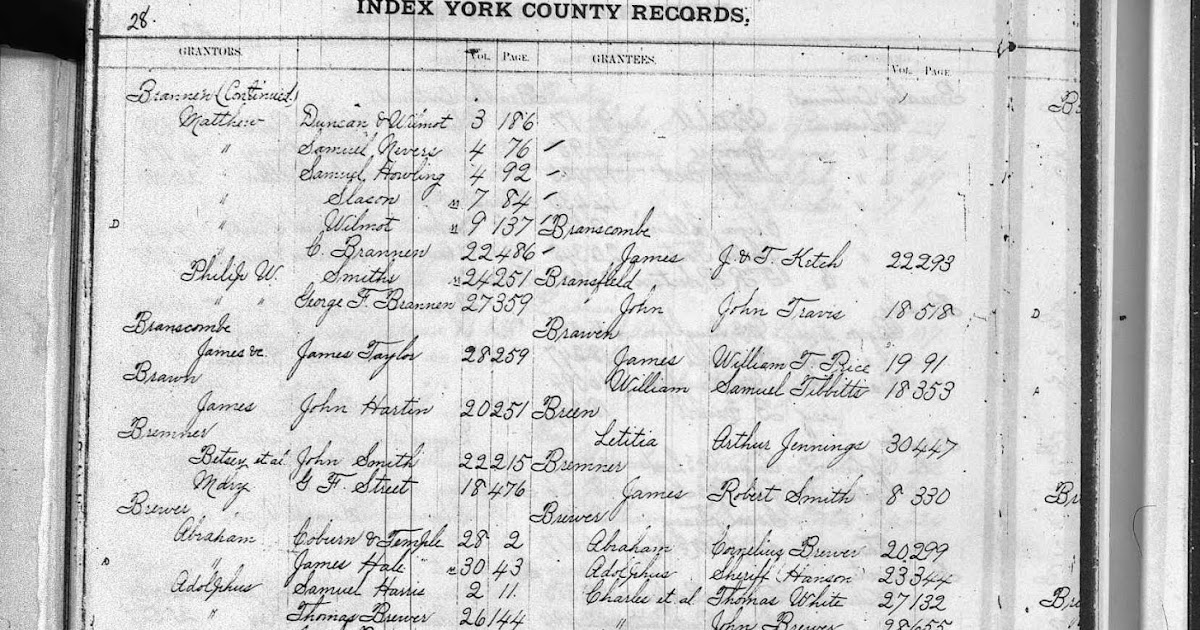 28.
INDEX YORK COUNTY RECORDS.
GRANTORS. VOL. PAGE. GRANTEES. VOL. PAGE.
Brannen (Continued.)
Matthew Duncan & Wilmot 3 186
" Samuel Nevers 4 76
Samuel Howling 4 92
" Slason 7 84
D Wilmot 9 137 Branscombe
" C. Brannen 22 486 James J. & T. Ketch 22 293
Philip W. Smiths 24 251 Bransfield
" " George F. Brannen 27 359 John John Travis 18 518 D
Branscombe Brawen
James &c. James Taylor 28 259 James William T. Price 19 91
Brawn William Samuel Tibbitts 18 353 A
James John Hartin 20 251 Breen
Bremner Letitia Arthur Jennings 30 447
Betsey et al John Smith 22 215 Bremner
Mary G F. Street 18 476 James Robert Smith 8 330
Brewer Brewer
Abraham Coburn & Temple 28 2 Abraham Cornelius Brewer 20 299
D " James Hale 30 43 Adolphus Sheriff Hanson 23 344
Adolphus Samuel Harris 2 11. Charles et al Thomas White 27 132
" Thomas Brewer 26 144 " John Brewer 28 655